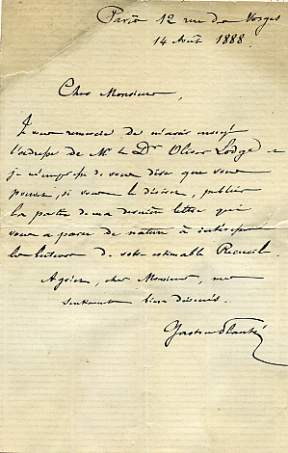 Paris 12 rue des Vosges
14 Août 1888.
Cher Monsieur,
Je vous remercie de m'avoir envoyé
l'adresse de Mr le Dr Oliver Lodge et
je m'empresse de vous dire que vous
pouvez, si vous le désirez, publier
la partie de ma dernière lettre qui
vous a paru de nature à intéresser
les lecteurs de votre estimable Recueil.
Agréez, cher Monsieur, mes
sentiments bien dévoués.
Gaston Planté